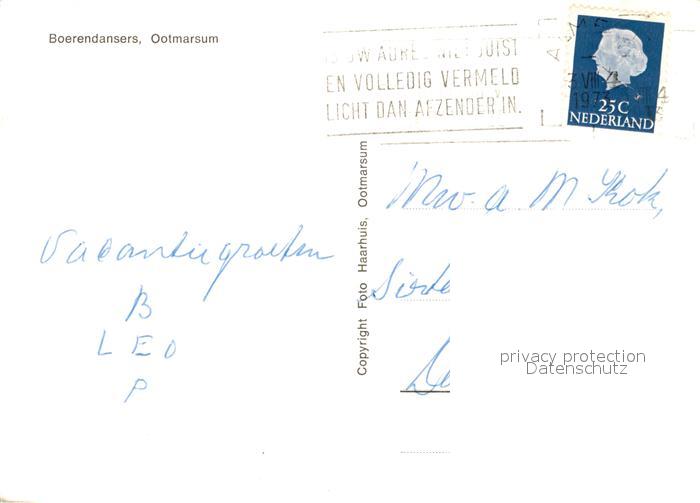 Boerendansers, Ootmarsum
IS UW ADRES NIET JUIST
EN VOLLEDIG VERMELD
LICHT DAN AFZENDER IN.
3 VIII
1973
25C
NEDERLAND
Copyright Foto Haarhuis, Ootmarsum
Vacantiegroeten
B
LEO
P
Mw. a M Kok,
privacy protection
Datenschutz